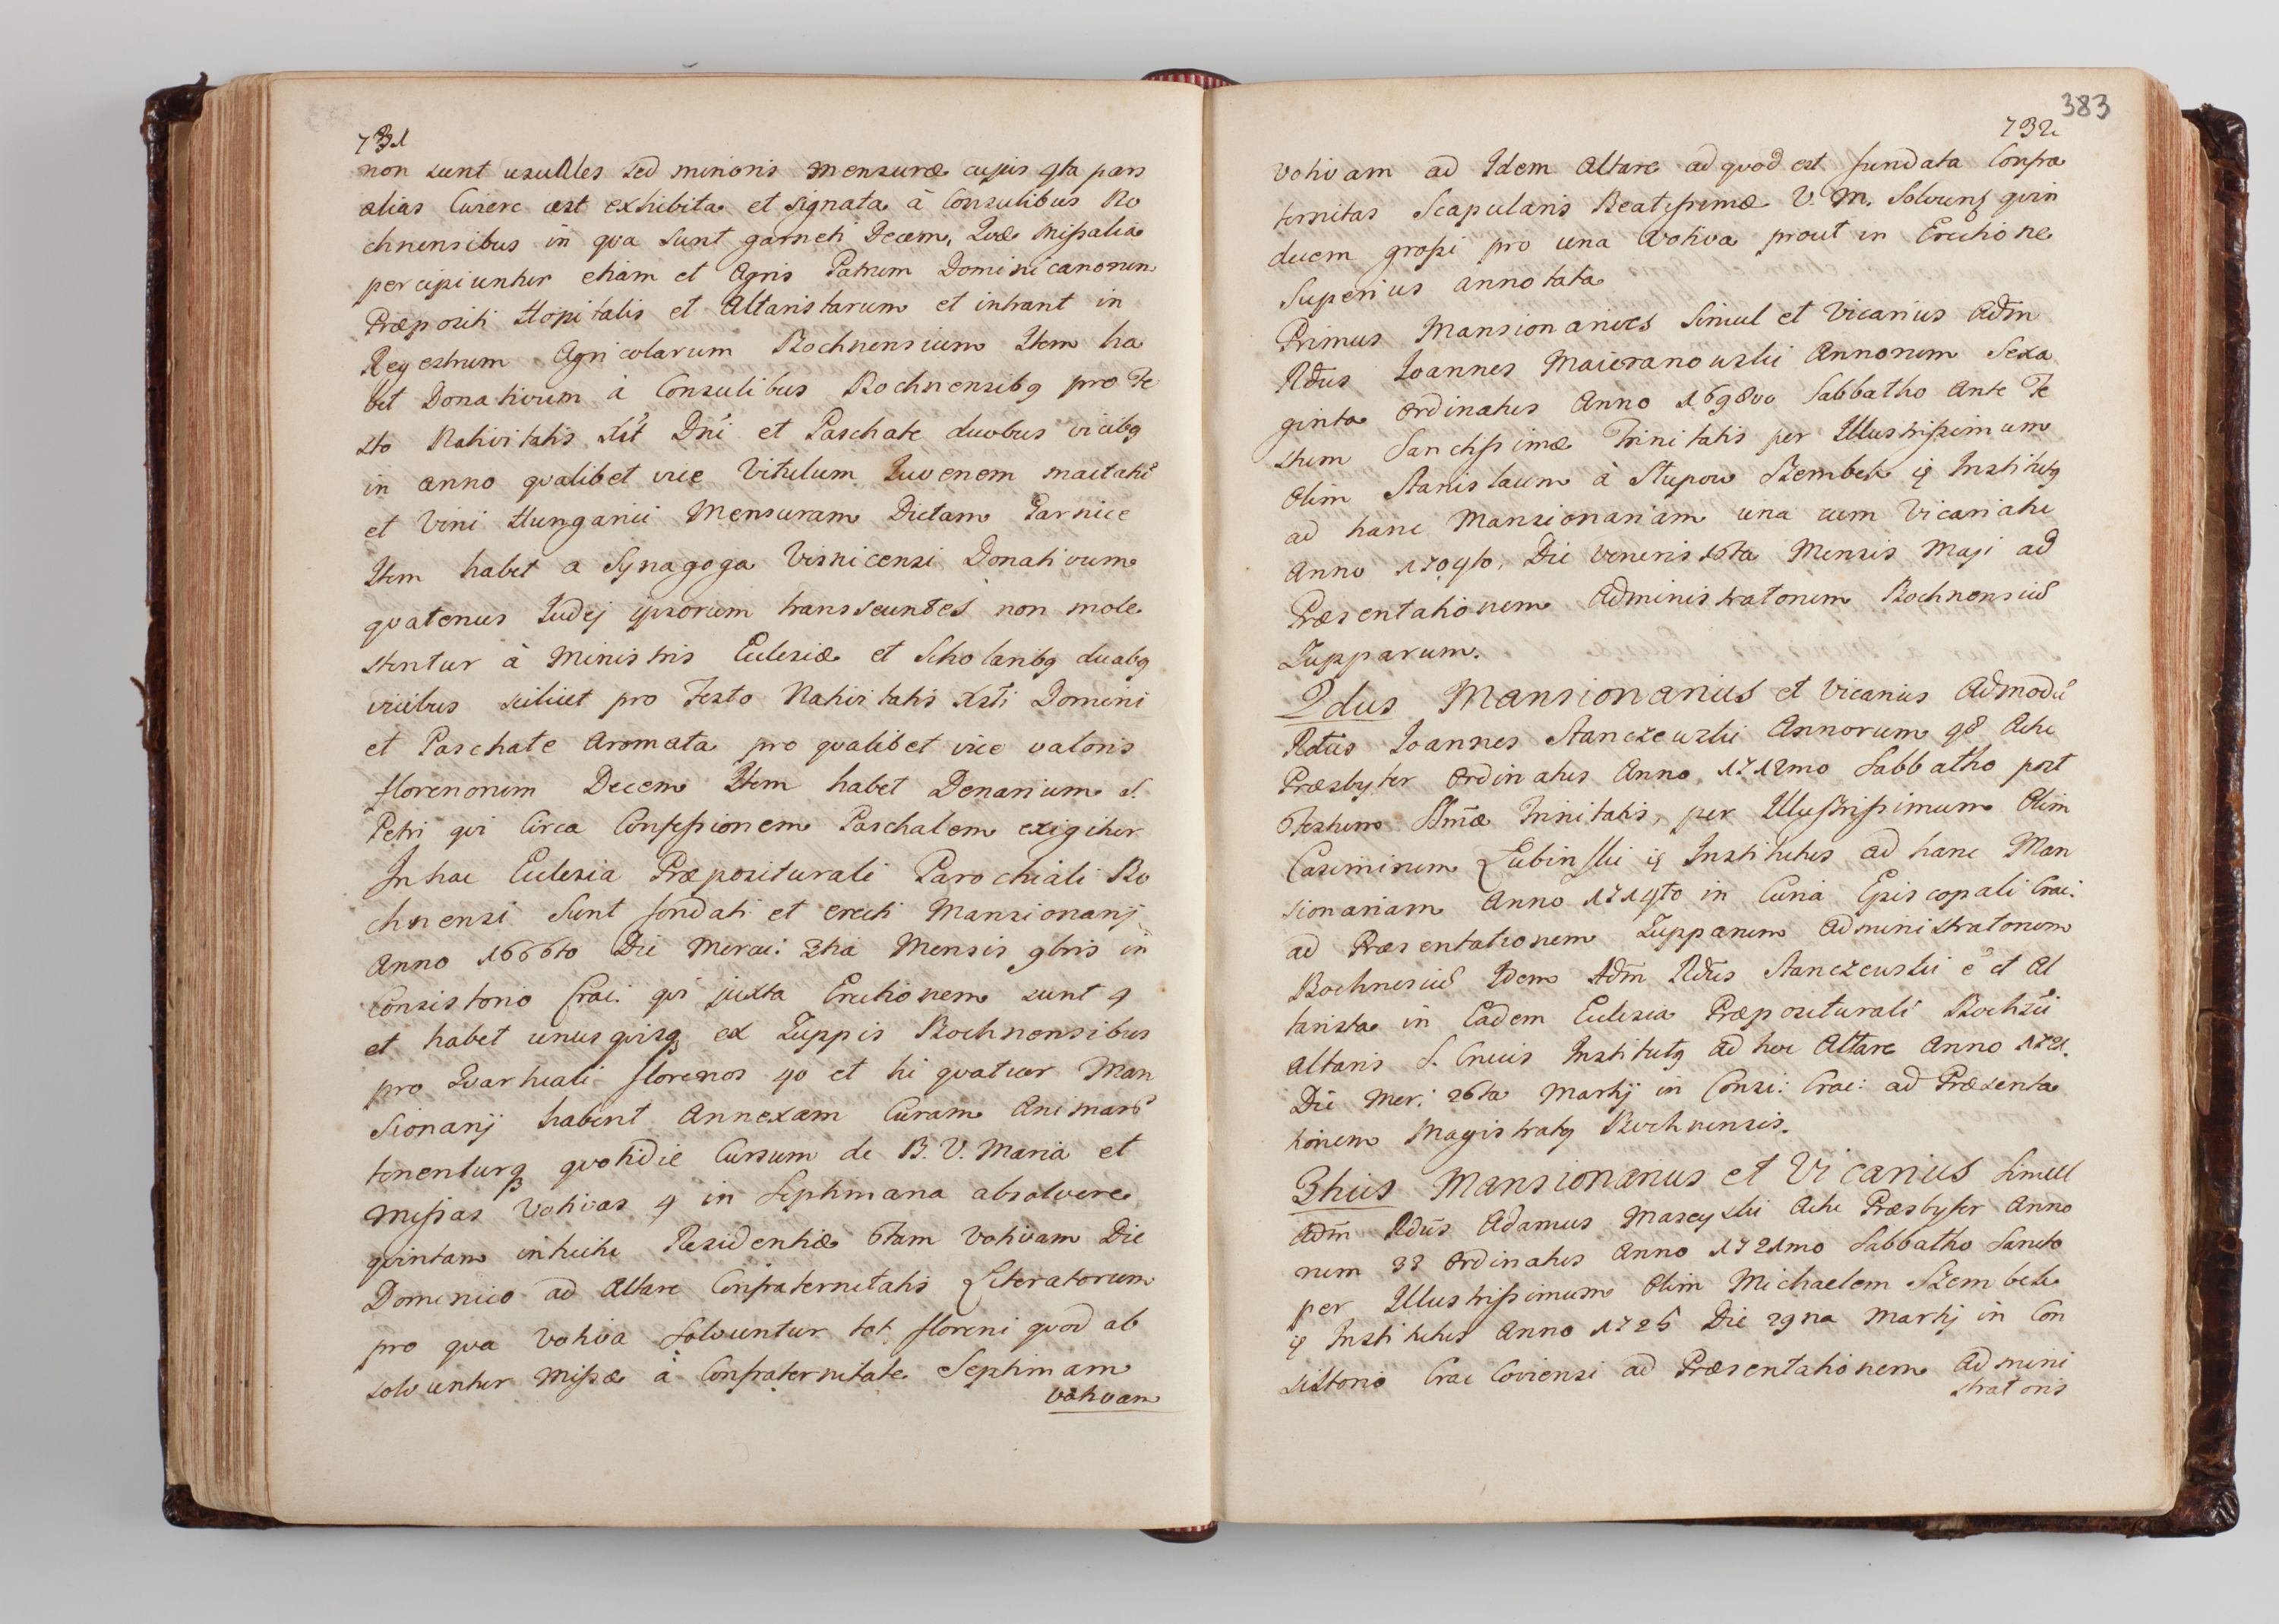 731
non sunt usualles sed minoris mensuræ cujus 4ta pars
alias Cwierc est exhibita et signata à Consulibus Bo
chnensibus in qva sunt garneti Decem, Qvæ Missalia
percipiuntur etiam et Agris Patrum Dominicanorum
Præpositi Hopitalis et Altaristarum et intrant in
Regestrum Agricolarum Bochnensium Item ha
bet Donativum à Consulibus Bochnensibq pro Fe
sto Nativitatis Xti Dni et Paschate duobus vicibq
in anno qvalibet vice Vitulum Juvenem mactatu
et Vini Hungarici Mensuram Dictam Garniec
Item habet a Synagoga Visnicensi Donativum
qvatenus Judej ipsorum transseuntes non mole
stentur à Ministris Eclesiæ et Scholaribq duabq
vicibus scilicet pro Festo Nativitatis Xsti Domini
et Paschate Aromata pro qvalibet vice valoris
florenorum Decem Item habet Denarium S.
Petri qvi Circa Confessionem Paschalem exigitur
In hac Eclesia Præpositurali Parochiali Bo
chnensi Sunt fondati et erecti Mansionarij
Anno 1666to Die Mercu: 3tia Mensis 9bris in
Consistorio Crac: qvi juxta Erectionem sunt 4
et habet unusqvisq ex Zuppis Bochnensibus
pro Qvartuali florenos 40 et hi qvatuor Man
sionarij habent Annexam Curam Animarū
tenenturq qvotidie Cursum de B. V. Maria et
Missas Votivas 4 in Septimana absolvere
qvintam intuitu Residentiæ 6tam Votivam Die
Dominico ad Altare Confraternitatis Literatorum
pro qva Votiva Solvuntur tot floreni qvod ab
solvuntur Missæ à Confraternitate Septimam
votivam
383
732
votivam ad Idem Altare ad qvod est fundata Confra
ternitas Scapularis Beatissimæ V. M. Solvunt qvin
decem grossi pro una Votiva prout in Erectione
Superius annotata
Primus Mansionarius Simul et Vicarius Adm
Rdus Joannes Maieranowski Annorum Sexa
ginta Ordinatus Anno 1698vo Sabbatho Ante Fe
stum Sanctissimæ Trinitatis per Illustrissimum
Olim Stanislaum à Slupow Szembek Institutq
ad hanc Mansionariam una cum Vicariatu
Anno 1704to, Die Veneris 16ta Mensis Maji ad
Præsentationem Administratorum Bochnensiū
Zupparum.
2dus Mansionarius et Vicarius Admodū
Rdus Joannes Stanczewski Annorum 48 Actu
Præsbyter Ordinatus Anno 1712mo Sabbatho post
Festum SSmæ Trinitatis, per Illustrissimum Olim
Casimirum Łubinski Institutus ad hanc Man
sionariam Anno 1714to in Curia Episcopali Crac:
ad Præsentationem Zupparum Administratorum
Bochnesiū Idem Adm Rdus Stanczewski e et Al
tarista in Eadem Eclesia Præpositurali Bochsū
Altaris S. Crucis Institutq ad hoc Altare Anno 1721.
Die Mer: 26ta Martij in Consi: Crac: ad Præsenta
tionem Magistratq Bochnensis.
3tius Mansionarius et Vicarius Simull
Adm Rdus Adamus Mascyski Actu Præsbyter Anno
rum 33 Ordinatus Anno 1721mo Sabbatho Sancto
per Illustrissimum Olim Michaelem Szembek
Institutus Anno 1725 Die 29na Martij in Con
sistorio Crac Coviensi ad Præsentationem Admini
stratoris